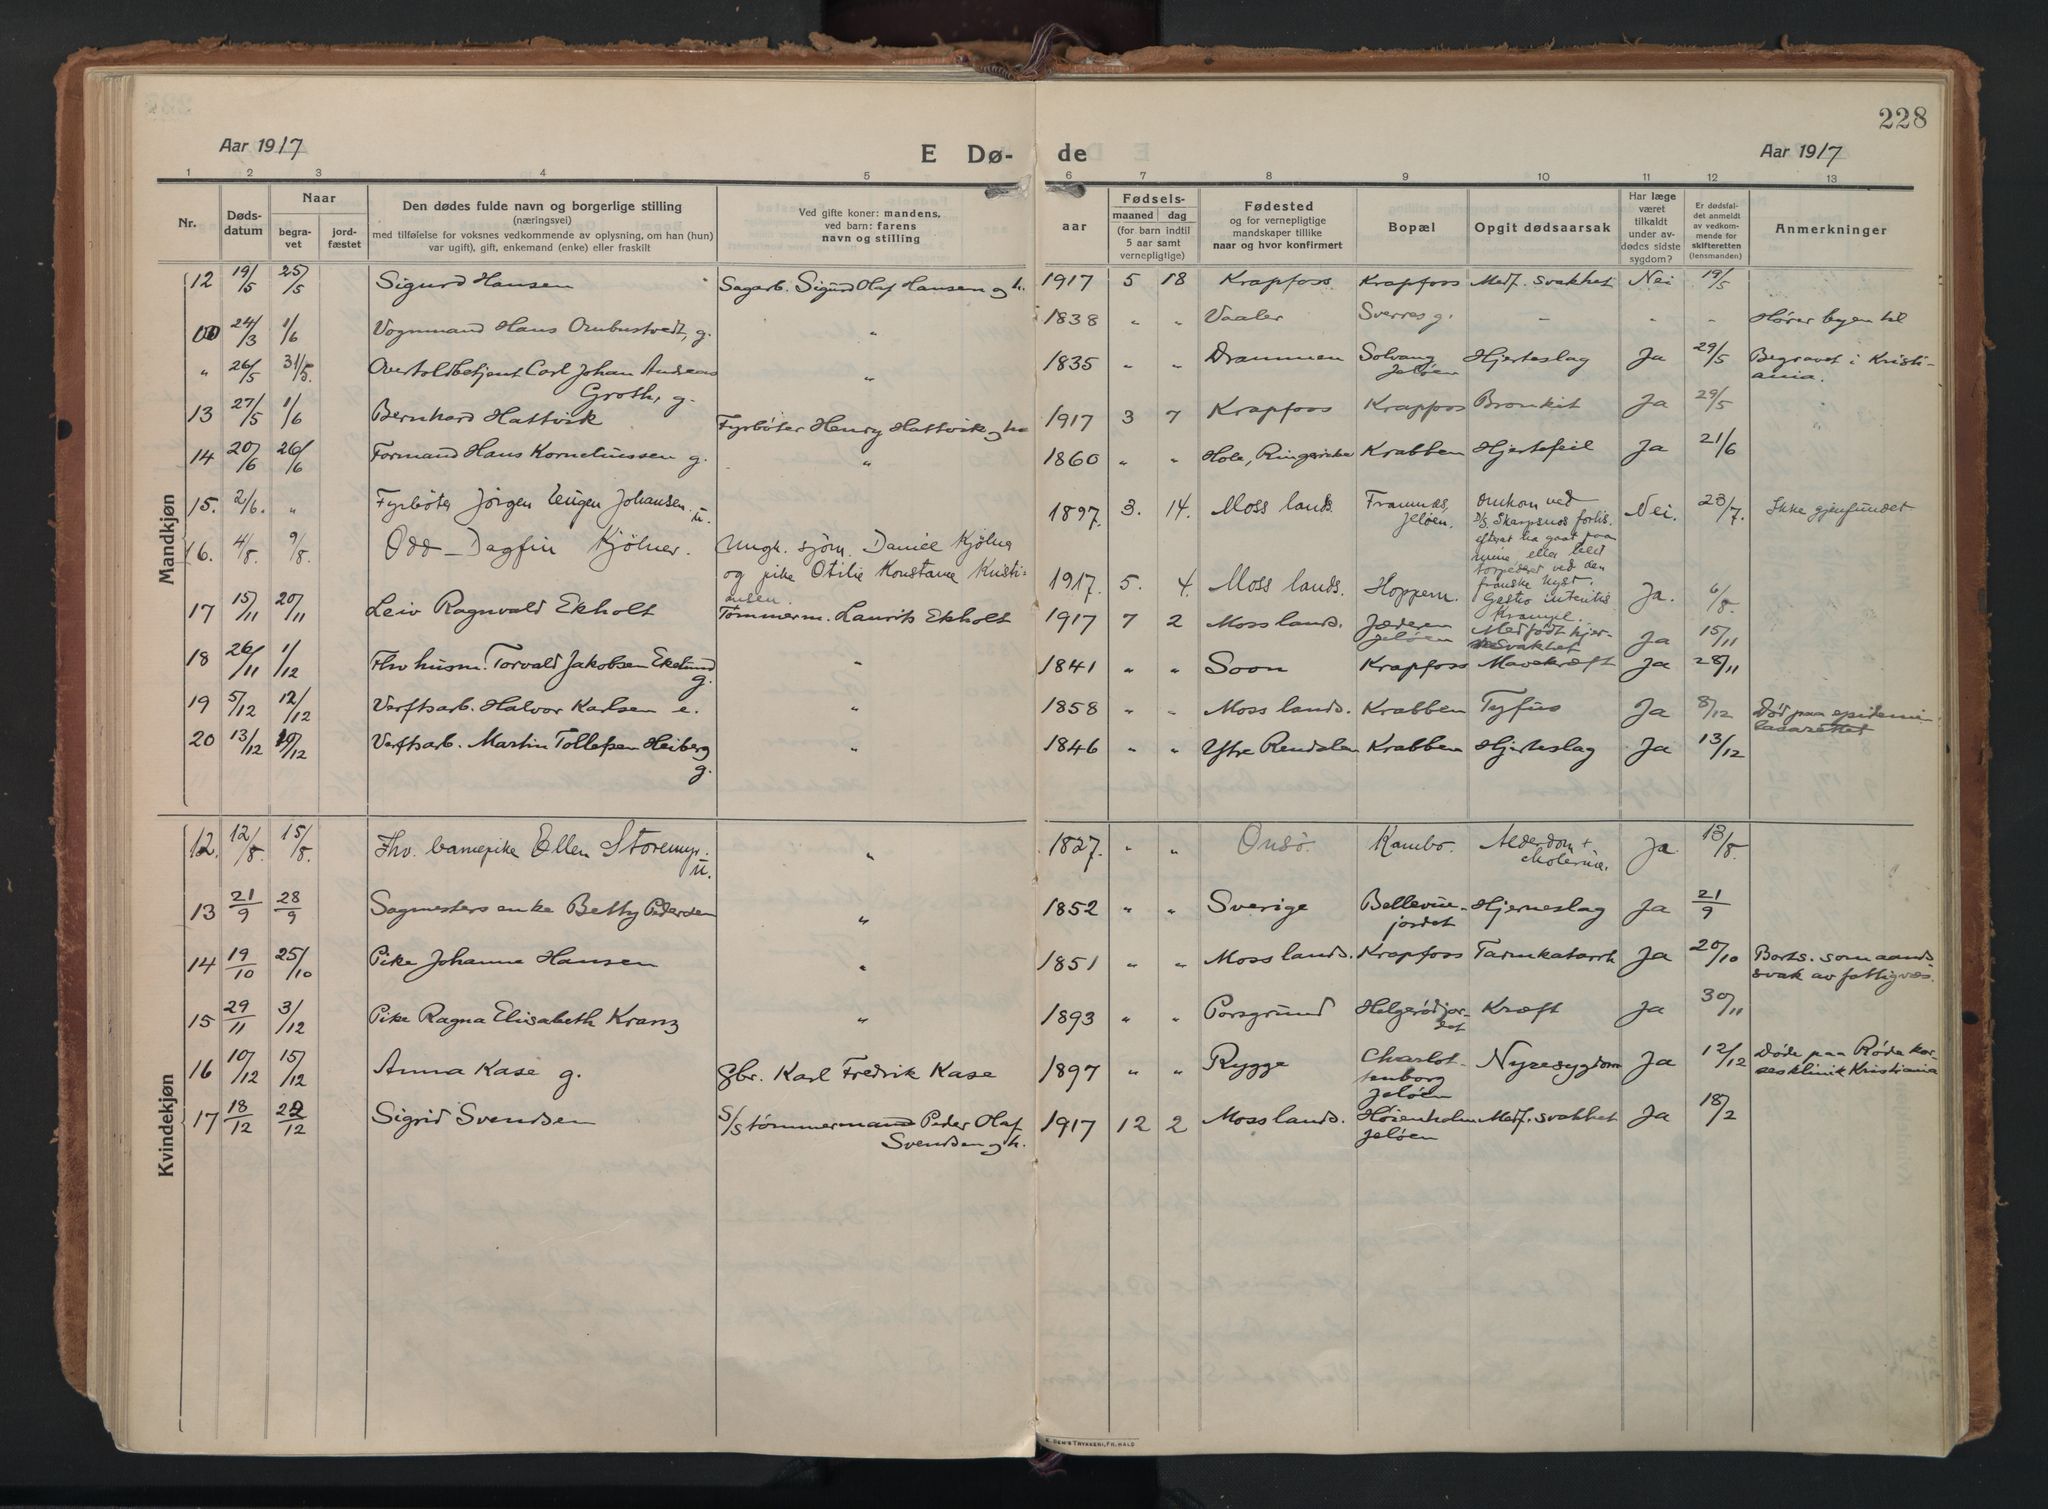 228
Aar 1917
E Dø-
de
Aar 1917
1 2 3 4 5 6 7 8 9 10 11 12 13
Nr.
Døds-
datum
Naar
begra-
vet
jord-
fæstet
Den dødes fulde navn og borgerlige stilling
(næringsvei)
med tilføielse for voksnes vedkommende av oplysning, om han (hun)
var ugift), gift, enkemand (enke) eller fraskilt
Ved gifte koner: mandens,
ved barn: farens
navn og stilling
aar
Fødsels-
maaned
dag
(for barn indtil
5 aar samt
vernepligtige)
Fødested
og for vernepligtige
mandskaper tillike
naar og hvor konfirmert
Bopæl
Opgit dødsaarsak
Har læge
været
tilkaldt
under av-
dødes sidste
sygdom?
Er dødsfal-
det anmeldt
av vedkom-
mende for
skifteretten
(lensmanden)
Anmerkninger
Mandkjøn
12 19/5 25/5 Sigurd Hansen Sagarb. Sigurd Olaf Hansen og h. 1917 5 18 Krapfoss Krapfoss Medf. svakhet Nei 19/5
24/3 1/6 Vognmand Hans Ombustvedt, g. " 1838 " " Vaaler Sverres g. - - - Hører byen til
" 26/5 31/5. Overtoldbetjent Carl Johan Andreas
Groth, g. " 1835 " " Drammen Solvang
Jeløen Hjerteslag Ja 29/5 Begravet i Kristi-
ania.
13 27/5 1/6 Bernhard Hattvik Fyrbøter Henry Hattvik og h. 1917 3 7 Krapfoss Krapfoss Bronkit Ja 29/5
14 20/6 26/6 Formand Hans Korneliussen g. " 1860 " " Hole, Ringerike Krabben Hjertefeil Ja 21/6
15. 2/6. " Fyrbøter Jørgen Eugen Johansen. u. 1897. 3. 14. Moss lands. Framnæs,
Jeløen. Omkom ved
D/S. Skarpsnos forlis.
efterat ha gaat paa
mine eller blit
torpedert ved den
franske kyst. Nei. 23/7. Ikke gjenfundet
16. 4/8. 9/8. Odd-Dagfin Kjølner. Ungk. sjøm. Daniel Kjølner
og pike Otilie Konstanse Kristi-
ansen. 1917. 5. 4. Moss lands. Hoppern. Gastro interitis
Krampe. Ja. 6/8.
17 15/11 20/11 Leiv Ragnvald Ekholt Tømmerm. Laurits Ekholt 1917 7 2 Moss lands. Jæderen
Jeløen Medfødt hjer-
tesvakhet Ja 15/11
18 26/11 1/12 Fhv husm. Torvald Jakobsen Ekelund
g. " 1841 " " Soon Krapfoss Mavekræft Ja 28/11
19 5/12 12/12 Verftsarb. Halvor Karlsen e. " 1858 " " Moss lands. Krabben Tyfus Ja 8/12 Død paa epidemi-
lasarettet
20 13/12 /12 Verftsarb. Martin Tollefsen Heiberg
g. " 1846 " " Ytre Rendalen Krabben Hjerteslag Ja 13/12
Kvindekjøn
12. 12/8. 15/8. Fhv. barnepike Ellen Storemyr.
u. " 1827. " " Onsø. Kambo. Alderdom +
cholerine. Ja 13/8.
13 21/9 28/9 Sagmesters enke Betty Pedersen " 1852 " " Sverige Bellevue-
jordet Hjerneslag Ja 21/9
14 19/10 25/10 Pike Johanne Hansen " 1851 " " Moss lands. Krapfoss Tarmkatarrh Ja 20/10 Borts. som aands
svak av fattigvæs.
15 29/11 3/12 Pike Ragna Elisabeth Kranz " 1893 " " Porsgrund Helgerødjor-
det Kræft Ja 30/11
16 10/12 15/12 Anna Kase g. Gbr. Karl Fredrik Kase 1897 " " Rygge Charlot-
tenborg
Jeløen Nyresygdom Ja 12/12 Døde paa Røde kor-
sesklinik Kristiania
17 18/12 22/12 Sigrid Svendsen S/S tømmermand Peder Olaf
Svendsen og h. 1917 12 2 Moss lands. Høienholm
Jeløen Medf. svakhet Ja 18/2
E. SEM'S TRYKKERI, FR.HALD